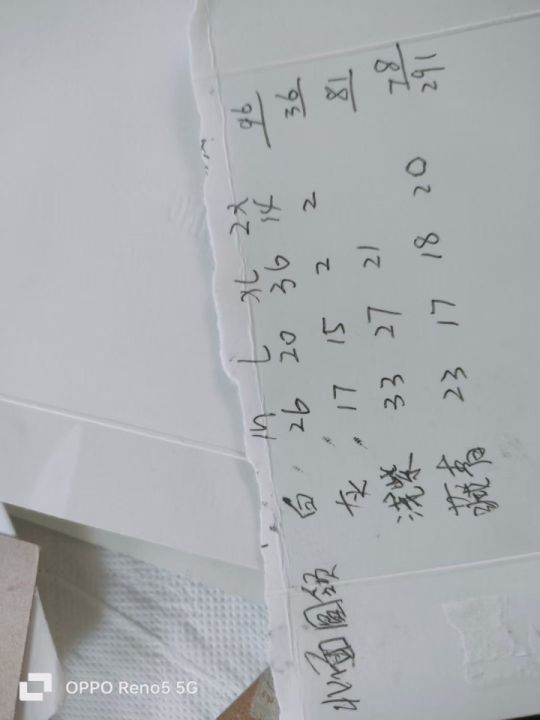 M L XL 2X
小雨圆领 白 26 20 36 14 96
灰 17 15 2 2 36
浅紫 33 27 21 81
藏青 23 17 18 20 78
291
OPPO Reno5 5G